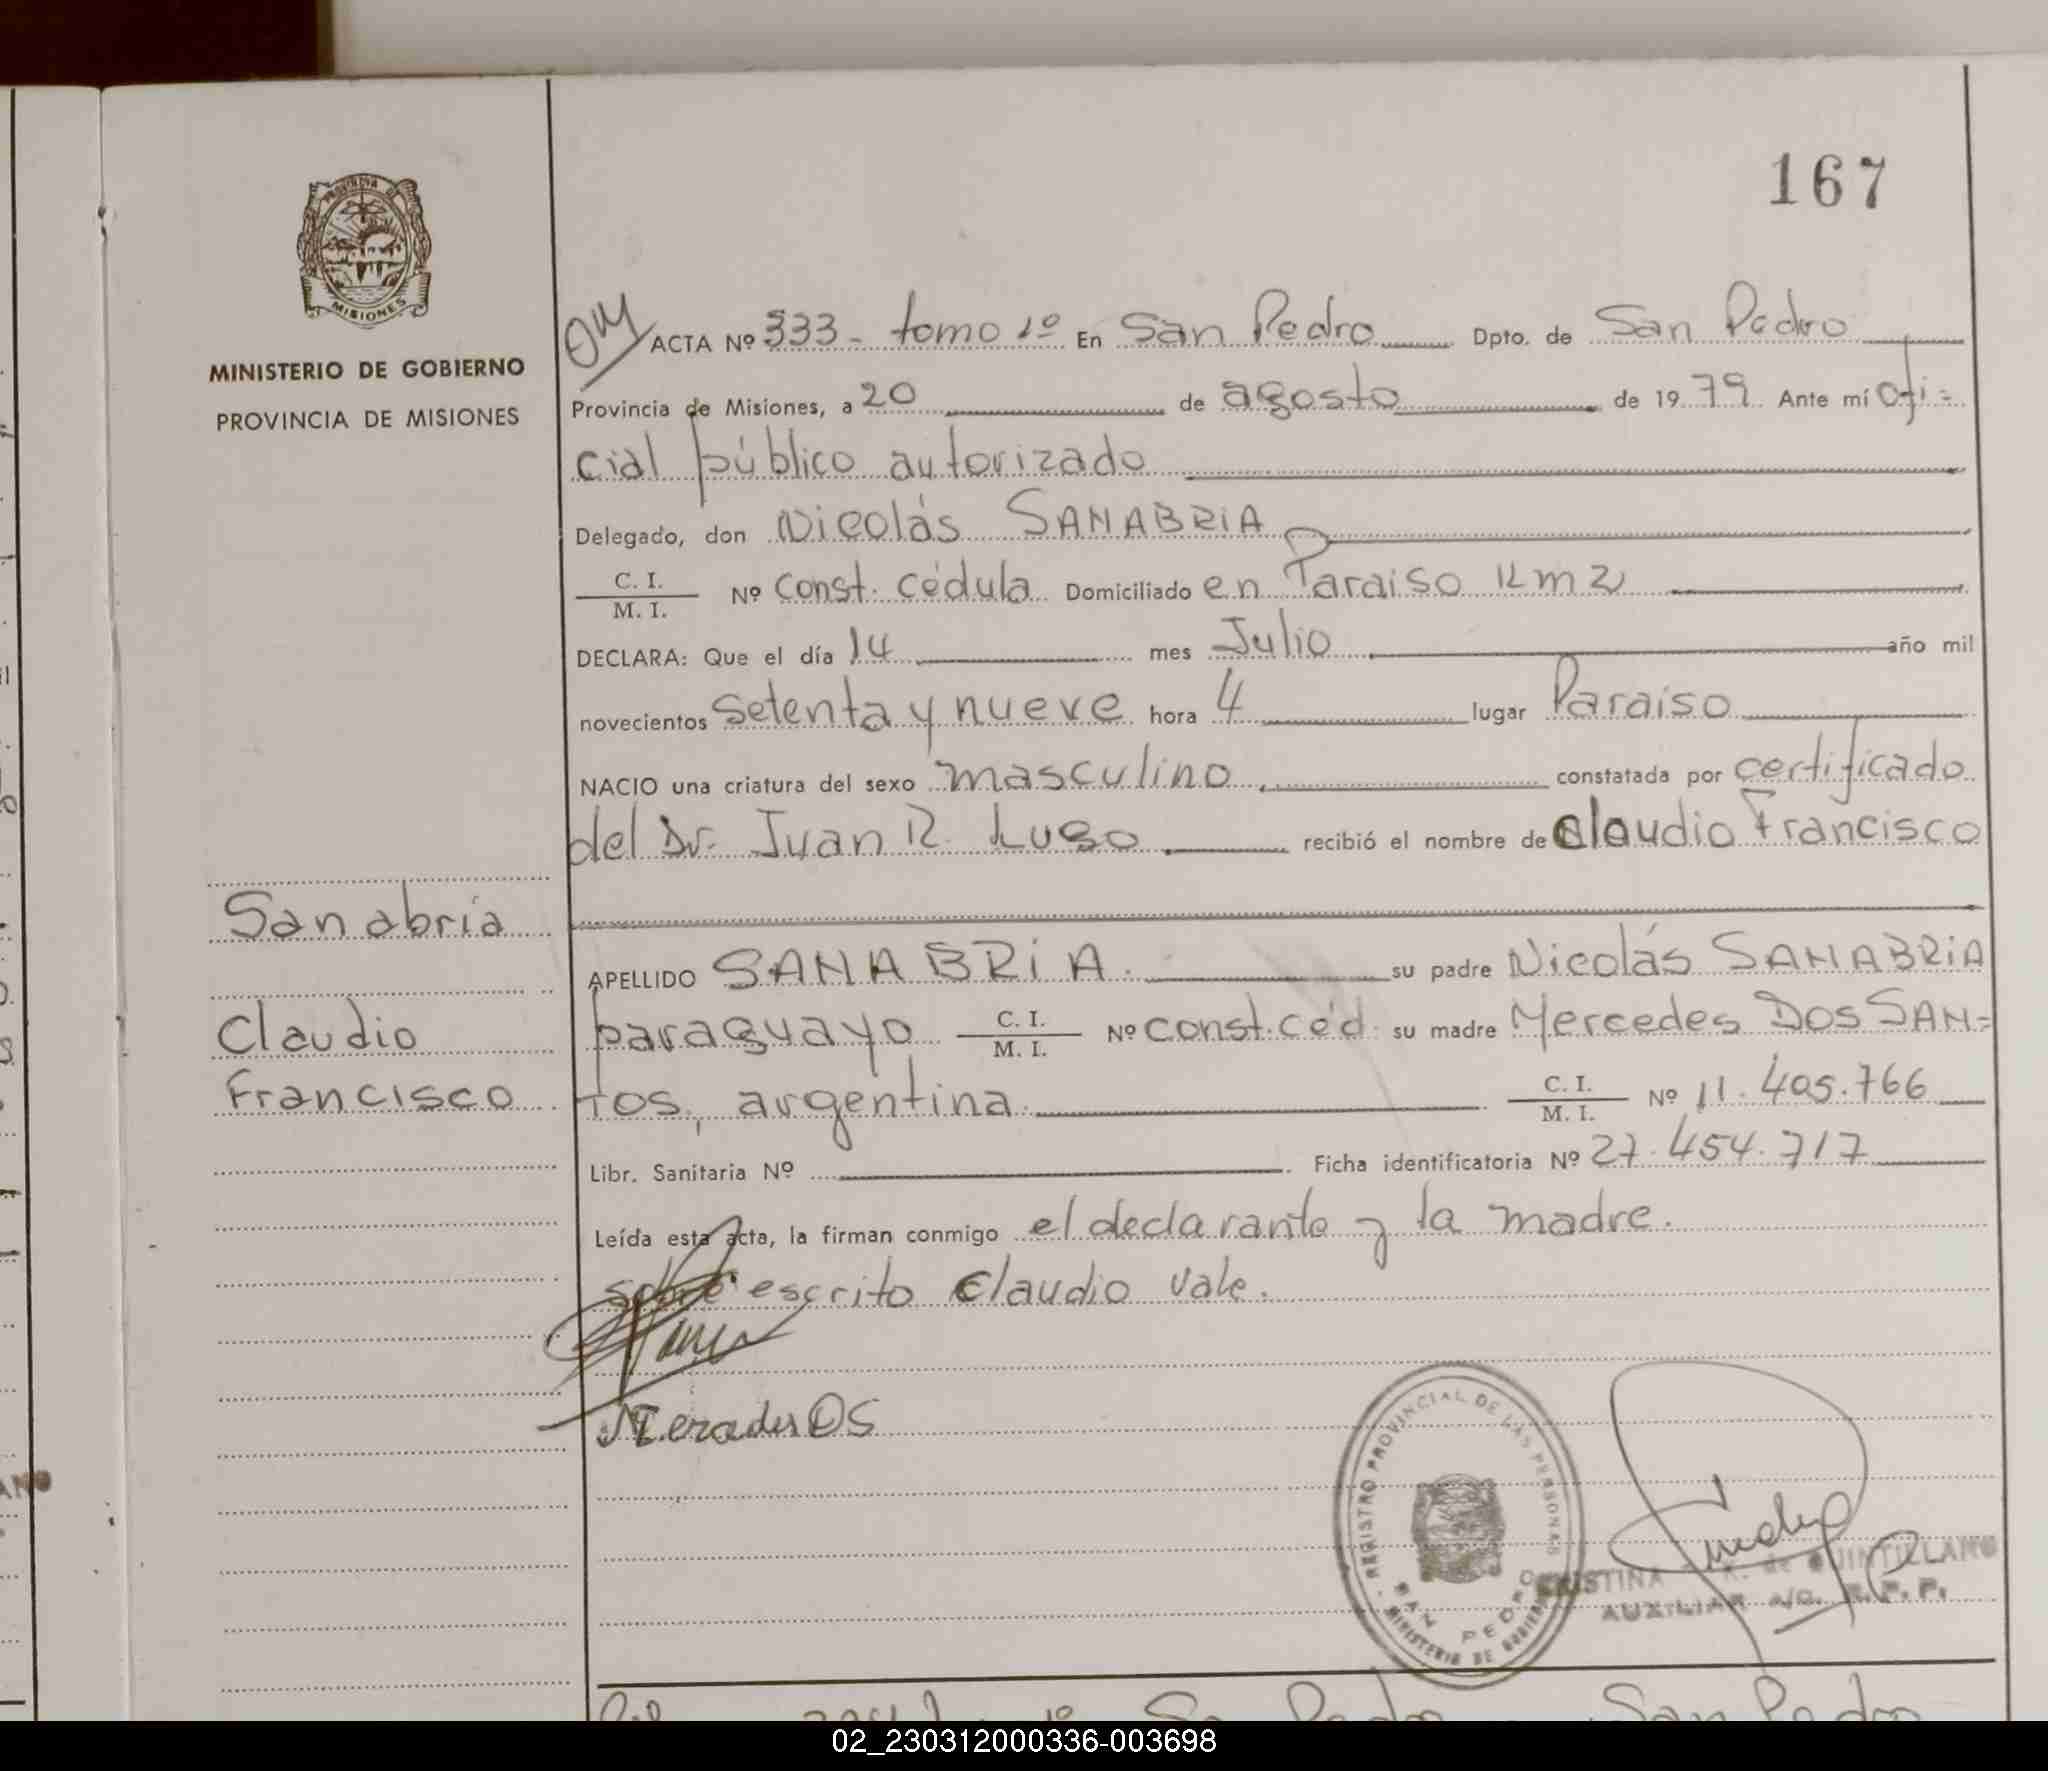 167
PROVINCIA DE
MISIONES
MINISTERIO DE GOBIERNO
PROVINCIA DE MISIONES
Sanabria
Claudio
Francisco
ACTA Nº 333 - tomo 1º En San Pedro Dpto. de San Pedro
Provincia de Misiones, a 20 de agosto de 1979 Ante mí ofi=
cial público autorizado
Delegado, don Nicolás SANABRIA
C. I. / M. I. Nº const. cédula Domiciliado en Paraiso Km 2
DECLARA: Que el día 14 mes Julio año mil
novecientos setenta y nueve hora 4 lugar Paraiso
NACIO una criatura del sexo masculino constatada por certificado
del Dr. Juan R. Lugo recibió el nombre de Claudio Francisco
APELLIDO SANABRIA su padre Nicolás SANABRIA
paraguayo C. I. / M. I. Nº const. céd. su madre Mercedes DOS SAN=
TOS, argentina. C. I. / M. I. Nº 11.405.766
Libr. Sanitaria Nº Ficha identificatoria Nº 27.454.717
Leída esta acta, la firman conmigo el declarante y la madre.
sobre escrito Claudio vale.
REGISTRO PROVINCIAL DE LAS PERSONAS
SAN PEDRO
MINISTERIO DE GOBIERNO
CRISTINA de QUINTILLANO
AUXILIAR a/c. R.P.P.
San Pedro San Pedro
02_230312000336-003698